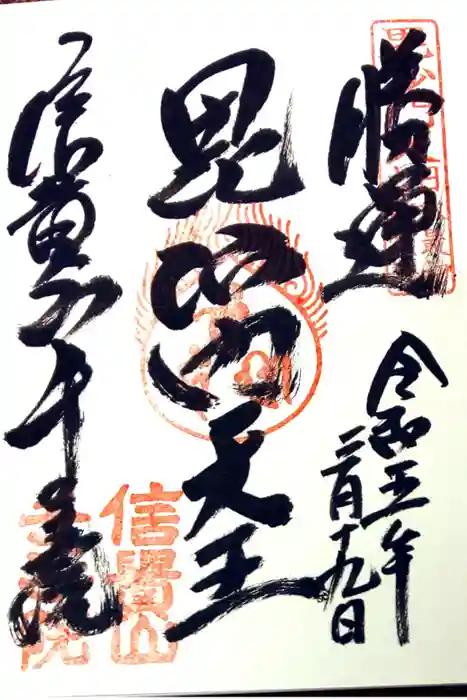 勝運
令和五年
二月十九日
毘沙門天王
信貴山千手院
信貴山
千手院